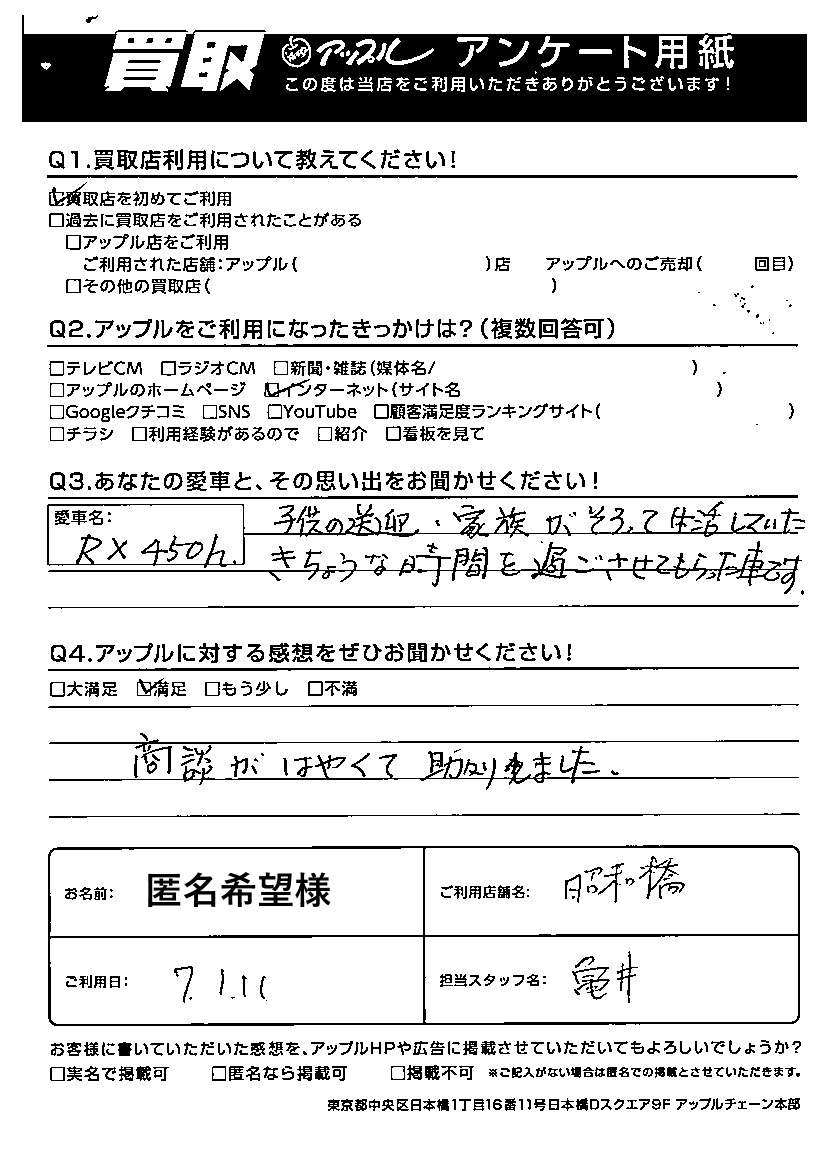 買取 アップル アンケート用紙
この度は当店をご利用いただきありがとうございます!
Q1.買取店利用について教えてください!
☑買取店を初めてご利用
□過去に買取店をご利用されたことがある
□アップル店をご利用
ご利用された店舗:アップル( )店 アップルへのご売却( 回目)
□その他の買取店( )
Q2.アップルをご利用になったきっかけは?(複数回答可)
□テレビCM □ラジオCM □新聞・雑誌(媒体名/ )
□アップルのホームページ ☑インターネット(サイト名 )
□Googleクチコミ □SNS □YouTube □顧客満足度ランキングサイト( )
□チラシ □利用経験があるので □紹介 □看板を見て
Q3.あなたの愛車と、その思い出をお聞かせください!
愛車名: RX450h. 子供の送迎・家族がそろって生活していた
きちょうな時間を過ごさせてもらった車です.
Q4.アップルに対する感想をぜひお聞かせください!
□大満足 ☑満足 □もう少し □不満
商談がはやくて助かりました.
お名前: 匿名希望様 ご利用店舗名: 昭和橋
ご利用日: 7.1.11 担当スタッフ名: 亀井
お客様に書いていただいた感想を、アップルHPや広告に掲載させていただいてもよろしいでしょうか?
□実名で掲載可 □匿名なら掲載可 □掲載不可 ※ご記入がない場合は匿名での掲載とさせていただきます。
東京都中央区日本橋1丁目16番11号日本橋Dスクエア9F アップルチェーン本部